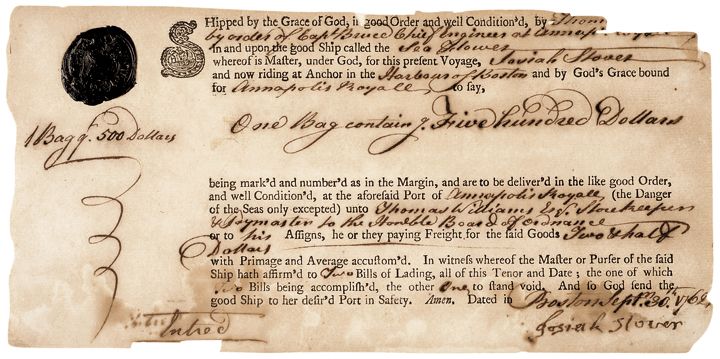 Shipped by the Grace of God, in good Order and well Condition'd, by Thom
by order of Capt. Bruce Chief Engineer at Annap
In and upon the good Ship called the Sea Flower
whereof is Master, under God, for this present Voyage, Josiah Stover
and now riding at Anchor in the Harbour of Boston and by God's Grace bound
for Annapolis Royall, to say,
1 Bag q. 500 Dollars
One Bag contain g. Five hundred Dollars
being mark'd and number'd as in the Margin, and are to be deliver'd in the like good Order,
and well Condition'd, at the aforesaid Port of Annapolis Royall (the Danger
of the Seas only excepted) unto Thomas Williams Esq. Storekeeper
& Paymaster to the Honble Board of Ordnance
or to his Assigns, he or they paying Freight for the said Goods Two & half
Dollars
with Primage and Average accustom'd. In witness whereof the Master or Purser of the said
Ship hath affirm'd to Two Bills of Lading, all of this Tenor and Date; the one of which
Two Bills being accomplish'd, the other One to stand void. And so God send the
good Ship to her desir'd Port in Safety. Amen. Dated in Boston Sept. 30, 176
Josiah Stover